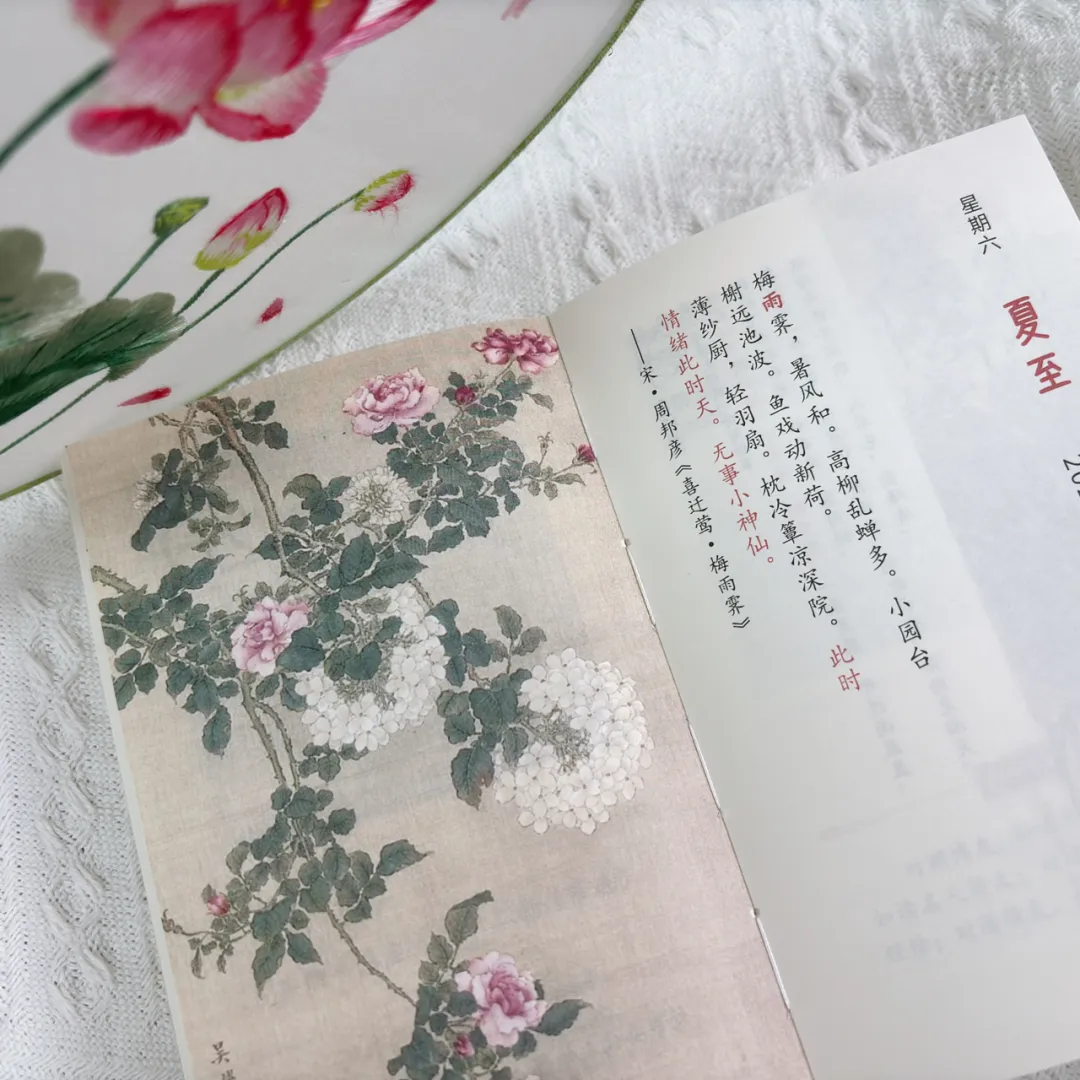 20
夏至
星期六
梅雨霁，暑风和。高柳乱蝉多。小园台
榭远池波。鱼戏动新荷。
薄纱厨，轻羽扇。枕冷簟凉深院。此时
情绪此时天。无事小神仙。
——宋•周邦彦《喜迁莺•梅雨霁》
吴